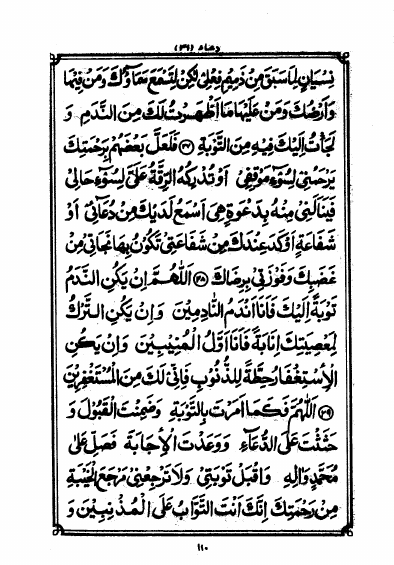 دعاء (۳۱)
نِسْيَانٍ لِمَا سَبَقَ مِنْ ذَمِيمِ فِعْلِي لٰكِنْ لِتَسْمَعَ سَمَاؤُكَ وَمَنْ فِيهَا
وَاَرْضُكَ وَمَنْ عَلَيْهَا مَا اَظْهَرْتُ لَكَ مِنَ النَّدَمِ وَ
لَجَأْتُ اِلَيْكَ فِيهِ مِنَ التَّوْبَةِ (۲۷) فَلَعَلَّ بَعْضَهُمْ بِرَحْمَتِكَ
يَرْحَمُنِي لِسُوءِ مَوْقِفِي اَوْ تُدْرِكُهُ الرِّقَّةُ عَلَيَّ لِسُوءِ حَالِي
فَيَنَالَنِي مِنْهُ بِدَعْوَةٍ هِيَ اَسْمَعُ لَدَيْكَ مِنْ دُعَائِي اَوْ
شَفَاعَةٍ اَوْكَدُ عِنْدَكَ مِنْ شَفَاعَتِي تَكُونُ بِهَا نَجَاتِي مِنْ
غَضَبِكَ وَفَوْزَتِي بِرِضَاكَ (۲۸) اَللّٰهُمَّ اِنْ يَكُنِ النَّدَمُ
تَوْبَةً اِلَيْكَ فَاَنَا اَنْدَمُ النَّادِمِينَ وَاِنْ يَكُنِ التَّرْكُ
لِمَعْصِيَتِكَ اِنَابَةً فَاَنَا اَوَّلُ الْمُنِيبِينَ وَاِنْ يَكُنِ
الْاِسْتِغْفَارُ حِطَّةً لِلذُّنُوبِ فَاِنِّي لَكَ مِنَ الْمُسْتَغْفِرِينَ
(۲۹) اَللّٰهُمَّ فَكَمَا اَمَرْتَ بِالتَّوْبَةِ وَضَمِنْتَ الْقَبُولَ وَ
حَثَثْتَ عَلَى الدُّعَاءِ وَوَعَدْتَ الْاِجَابَةَ فَصَلِّ عَلٰى
مُحَمَّدٍ وَاٰلِهِ وَاقْبَلْ تَوْبَتِي وَلَا تَرْجِعْنِي مَرْجِعَ الْخَيْبَةِ
مِنْ رَحْمَتِكَ اِنَّكَ اَنْتَ التَّوَّابُ عَلَى الْمُذْنِبِينَ وَ
۱۱۰